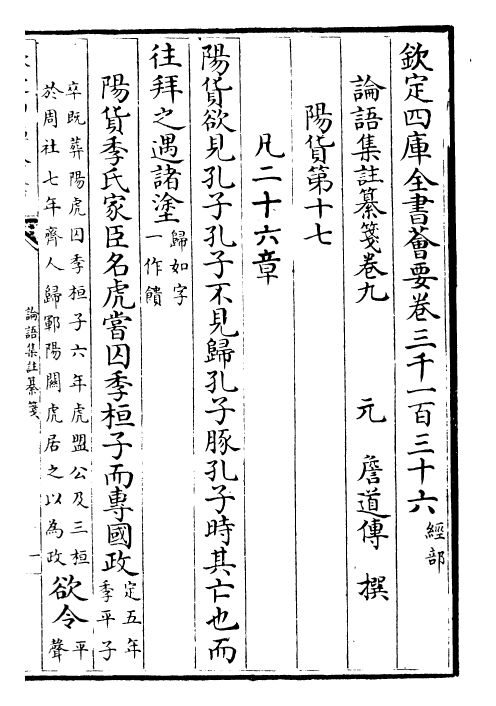 欽定四庫全書薈要卷三千一百三十六經部
論語集註纂箋卷九 元 詹道傳 撰
陽貨第十七
凡二十六章
陽貨欲見孔子孔子不見歸孔子豚孔子時其亡也而
往拜之遇諸塗歸如字
一作饋
陽貨季氏家臣名虎嘗囚季桓子而專國政定五年
季平子
卒既葬陽虎囚季桓子六年虎盟公及三桓
於周社七年齊人歸鄆陽關虎居之以為政欲令平
聲
論語集註纂箋
一